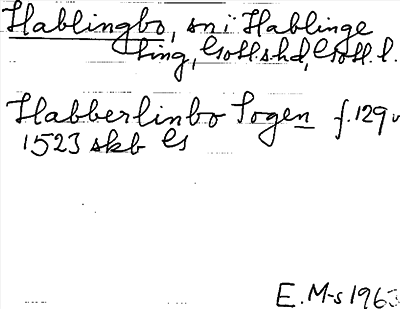 Hablingbo, sn i Hablinge
ting, Gotl.shd, Gotl. l.
Habberlinbo Sogen f. 129 v
1523 skb Gs
E. M-s 1963